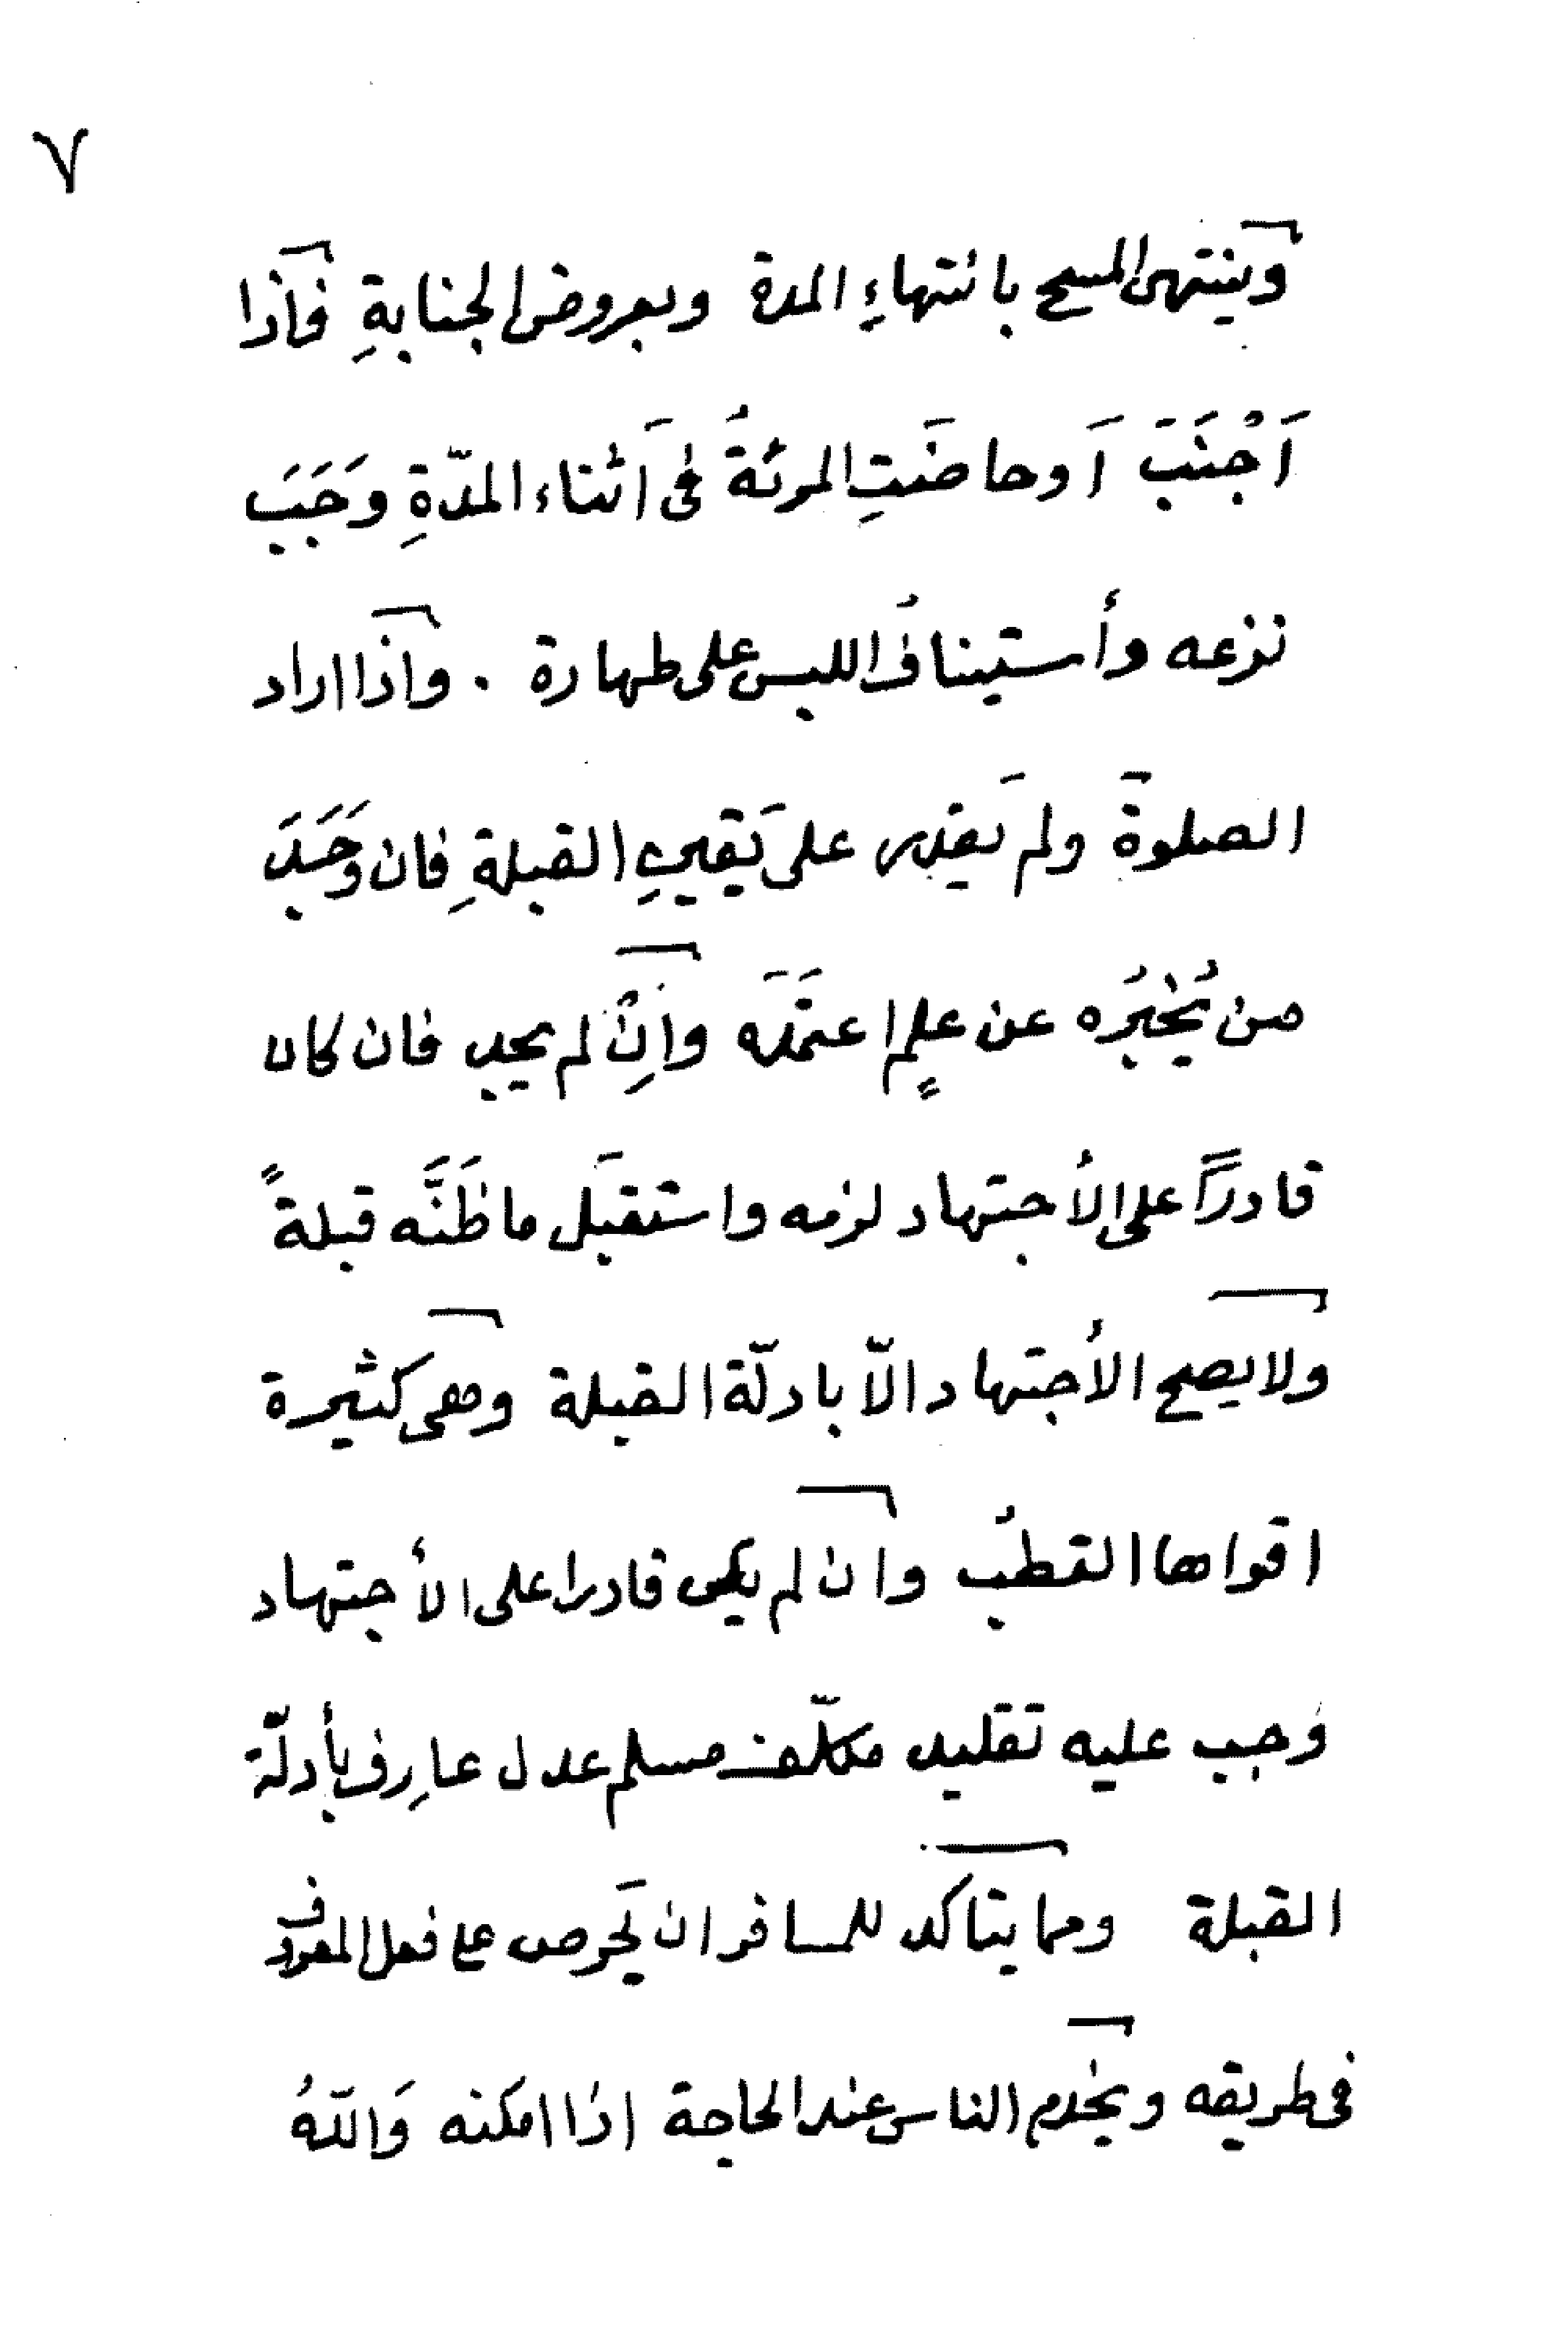 ٧
وينتهى المسح بانتهاءِ المدة وبعروض الجنابةِ فاذا
اَجْنَبَ اَوحاضَتِ المرئةُ فى اَثناء المدّةِ وَجَبَ
نزعه وأستينافُ اللبس على طهارة . واذا اراد
الصلوة ولم يَقدر على يَقينِ القبلةِ فان وَجَدَ
من يُخبُره عن علمٍ اعتمَدَه واِنْ لم يجد فان كان
قادرًا على الأجتهاد لزمه واستقبَل ما ظَنَّه قبلةً
ولا يصح الأجتهاد الّا بادلّة القبلة وهى كثيرة
اقواها القطبُ وان لم يكن قادرا على الأجتهاد
وجب عليه تقليد مكلّف مسلم عدل عارِف بأدلّة
القبلة ومما يتاكد للمسافر ان يَحرص على فعل المعروف
فى طريقه ويخدم الناس عند الحاجة اذا امكنه وَاللهُ